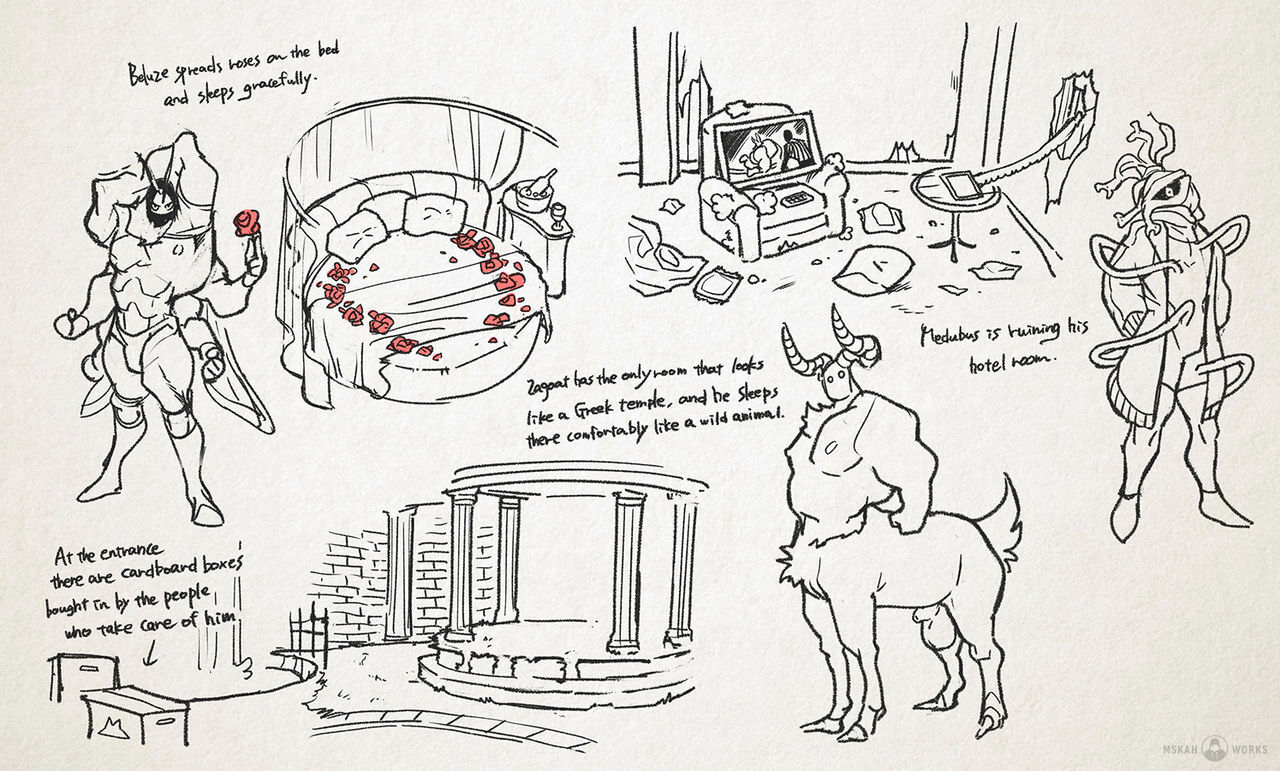 Beluze spreads roses on the bed
and sleeps gracefully.
Medubus is ruining his
hotel room.
Zagoat has the only room that looks
like a Greek temple, and he sleeps
there comfortably like a wild animal.
At the entrance
there are cardboard boxes
bought in by the people
who take care of him
MSKAH WORKS